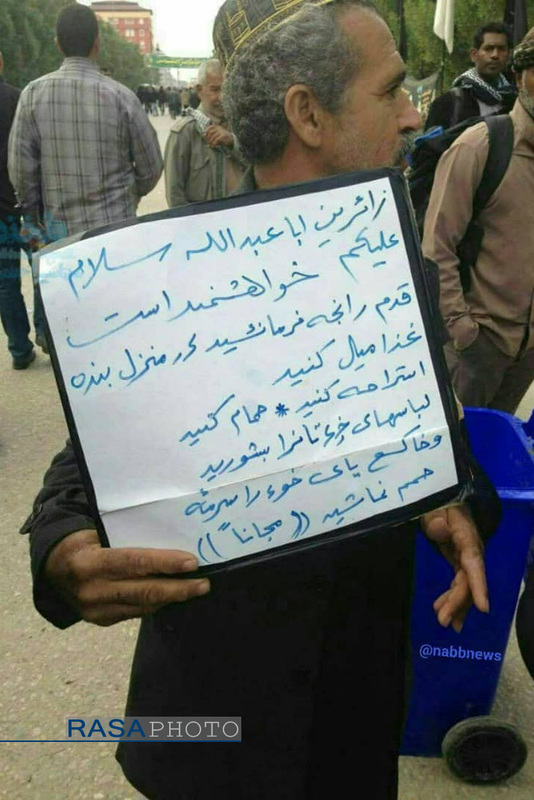 زائرین ابا عبد الله سلام
علیکم خواهشمند است
قدم رانجه فرمائید در منزل بنده
غذا میل کنید
استراحه کنید * حمام کنید
لباسهای خودتانرا بشورید
پای خود را سرمئه
نمائید ((مجاناً))
@nabbnews
RASAPHOTO